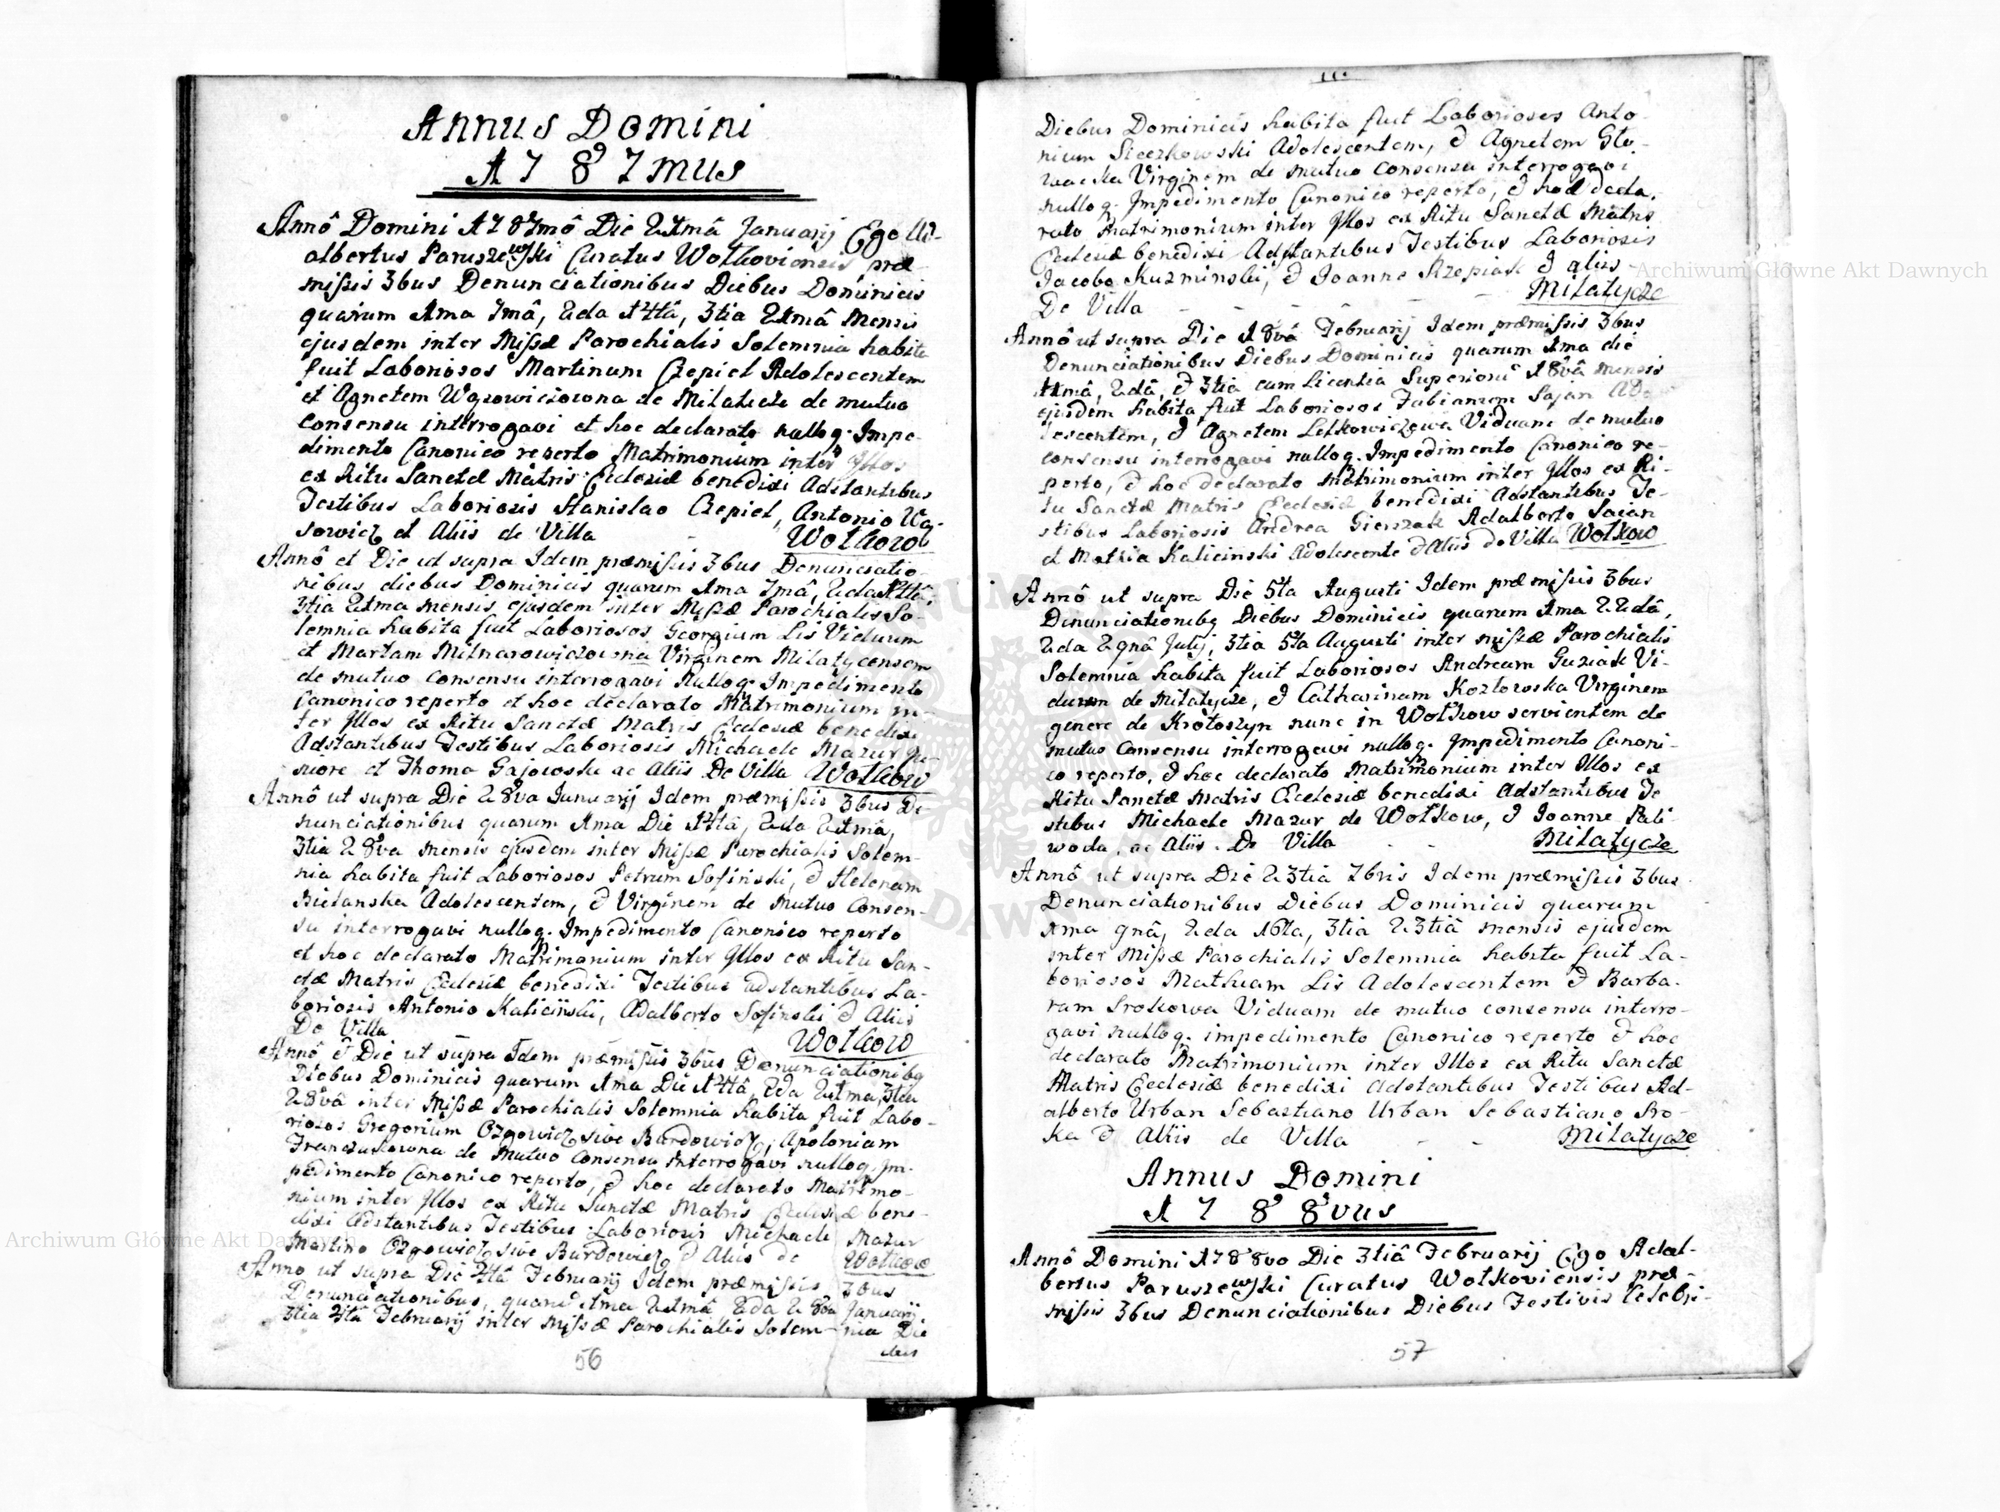 Annus Domini
1787mus
Annô Domini 1787mô Die 21mâ Januarij Ego Ad-
albertus Paruszewski Curatus Wołkoviensis præ-
mißis 3bus Denunciationibus Diebus Dominicis
quarum 1ma 7mâ, 2da 14tâ, 3tia 21mâ Mensis
ejusdem inter Mißæ Parochialis Solemnia habita
fuit Laboriosos Martinum Czepiel Adolescentem
et Agnetem de Milatycze de mutuo
consensu interrogavi et hoc declarato nulloq. Impe-
dimento Canonico reperto Matrimonium inter Illos
ex Ritu Sanctæ Matris Ecclesiæ benedixi Adstantibus
Testibus Laboriosis Stanislao Czepiel, Antonio Wą-
sowicz et Aliis de Villa - Wołkow
Annô et Die ut supra Idem præmißis 3bus Denunciatio-
nibus diebus Dominicis quarum 1ma 7mâ, 2da 14tâ,
3tia 21ma mensis ejusdem inter Mißæ Parochialis So-
lemnia habita fuit Laboriosos Georgium Lis Viduum
et Martam Milnarowiczowna Virginem Milatycensem
de mutuo consensu interrogavi Nulloq. Impedimento
Canonico reperto et hoc declarato Matrimonium in-
ter Illos ex Ritu Sanctæ Matris Ecclesiæ benedixi
Adstantibus Testibus Laboriosis Michaele Mazur
et Thoma Gajowski ac Aliis De Villa Wołkow
Annô ut supra Die 28va Januarij Idem præmißis 3bus De-
nunciationibus quarum 1ma Die 14tâ, 2da 21mâ,
3tia 28va mensis ejusdem inter Mißæ Parochialis Solem-
nia habita fuit Laboriosos Petrum Sosinski, & Helenam
Bielanska Adolescentem, & Virginem de Mutuo Consen-
su interrogavi nulloq. Impedimento Canonico reperto
et hoc declarato Matrimonium inter Illos ex Ritu San-
ctæ Matris Ecclesiæ benedixi Testibus adstantibus La-
boriosis Antonio Kaliciński, Adalberto Sosinski & Aliis
De Villa Wołkow
Annô & Die ut supra Idem præmißis 3bus Denunciationibq
Diebus Dominicis quarum 1ma Die 14tâ, 2da 21ma, 3tia
28vâ inter Mißæ Parochialis Solemnia habita fuit Labo-
riosos Gregorium Ozgowicz sive Burdowicz, Apoloniam
de Mutuo consensu interrogavi nulloq. Im-
pedimento Canonico reperto, & hoc declarato Matrimo-
nium inter Illos ex Ritu Sanctæ Matris Ecclesiæ bene-
dixi Adstantibus Testibus Laboriosis Michaele Mazur
Martino Ozgowicz sive Burdowicz & Aliis de Wołkow
Anno ut supra Die 4tâ Februarij Idem præmißis 3bus
Denunciationibus, quarū 1ma 21mâ 2da 28va Januarij
3tia 4tâ Februarij inter Mißæ Parochialis Solem-nia Die
bus
56
Diebus Dominicis habita fuit Laboriosos Anto-
nium Sieczkowski Adolescentem, & Agnetem Gło-
wacka Virginem de mutuo consensu interrogavi
nulloq. Impedimento Canonico reperto, & hoc decla-
rato Matrimonium inter Illos ex Ritu Sanctæ Matris
Ecclesiæ benedixi Adstantibus Testibus Laboriosis
Jacobo Kuzminski, & Joanne Rzepiak & aliis
De Villa - - - - Milatycze
Annô ut supra Die 18vâ Februarij Idem præmißis 3bus
Denunciationibus Diebus Dominicis quarum 1ma die
11mâ, 2dâ, & 3tia cum Licentia Superiorū 18vâ mensis
ejusdem habita fuit Laboriosos Fabianum Sajan Ado-
lescentem, & Agnetem Lelkowiczowa Viduam de mutuo
consensu interrogavi nulloq. Impedimento Canonico re-
perto, & hoc declarato Matrimonium inter Illos ex Ri-
tu Sanctæ Matris Ecclesiæ benedixi Adstantibus Te-
stibus Laboriosis Andrea Gierzak Adalberto Saian
et Mathia Kalicinski Adolescente & Aliis de Villa Wołkow
Annô ut supra Die 5ta Augusti Idem præmißis 3bus
Denunciationibq Diebus Dominicis quarum 1ma 22dâ,
2da 29nâ Julij, 3tia 5ta Augusti inter mißæ Parochialis
Solemnia habita fuit Laboriosos Andream Guziak Vi-
duum de Milatycze, & Catharinam Kozłowska Virginem
genere de Krotoszyn nunc in Wołkow servientem de
mutuo consensu interrogavi nulloq. Impedimento Canoni-
co reperto, & hoc declarato Matrimonium inter Illos ex
Ritu Sanctæ Matris Ecclesiæ benedixi Adstantibus Te-
stibus Michaele Mazur de Wołkow, & Joanne Pali-
woda, ac Aliis De Villa - - Milatycze
Annô ut supra Die 23tia 7bris Idem præmißis 3bus
Denunciationibus Diebus Dominicis quarum
1ma 9nâ, 2da 16ta, 3tia 23tiâ mensis ejusdem
inter Mißæ Parochialis Solemnia habita fuit La-
boriosos Mathiam Lis Adolescentem & Barba-
ram Srokowa Viduam de mutuo consensu interro-
gavi nulloq. impedimento Canonico reperto & hoc
declarato Matrimonium inter Illos ex Ritu Sanctæ
Matris Ecclesiæ benedixi Adstantibus Testibus Ad-
alberto Urban Sebastiano Urban Sebastiano Sro-
ka & Aliis de Villa - - Milatycze
Annus Domini
1788vus
Annô Domini 1788vo Die 3tiâ Februarij Ego Adal-
bertus Paruszewski Curatus Wołkoviensis præ-
mißis 3bus Denunciationibus Diebus Festivis Celebri-
57
Archiwum Główne Akt Dawnych
Archiwum Główne Akt Dawnych